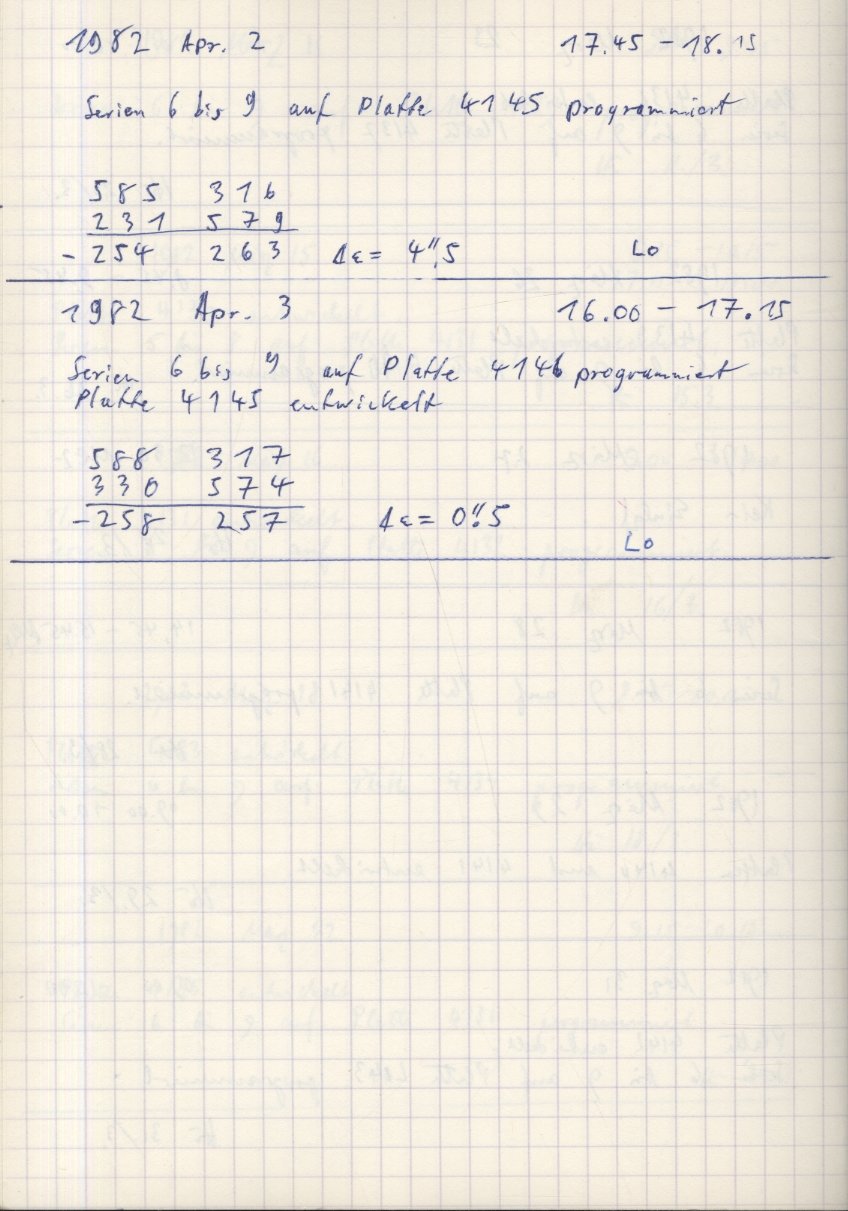 1982 Apr. 2 17.45 - 18.15
Serien 6 bis 9 auf Platte 4145 programmiert
585 316
231 579
-254 263 Δε= 4".5 Lo
1982 Apr. 3 16.00 - 17.15
Serien 6 bis 9 auf Platte 4146 programmiert
Platte 4145 entwickelt
588 317
330 574
-258 257 Δε= 0".5
Lo